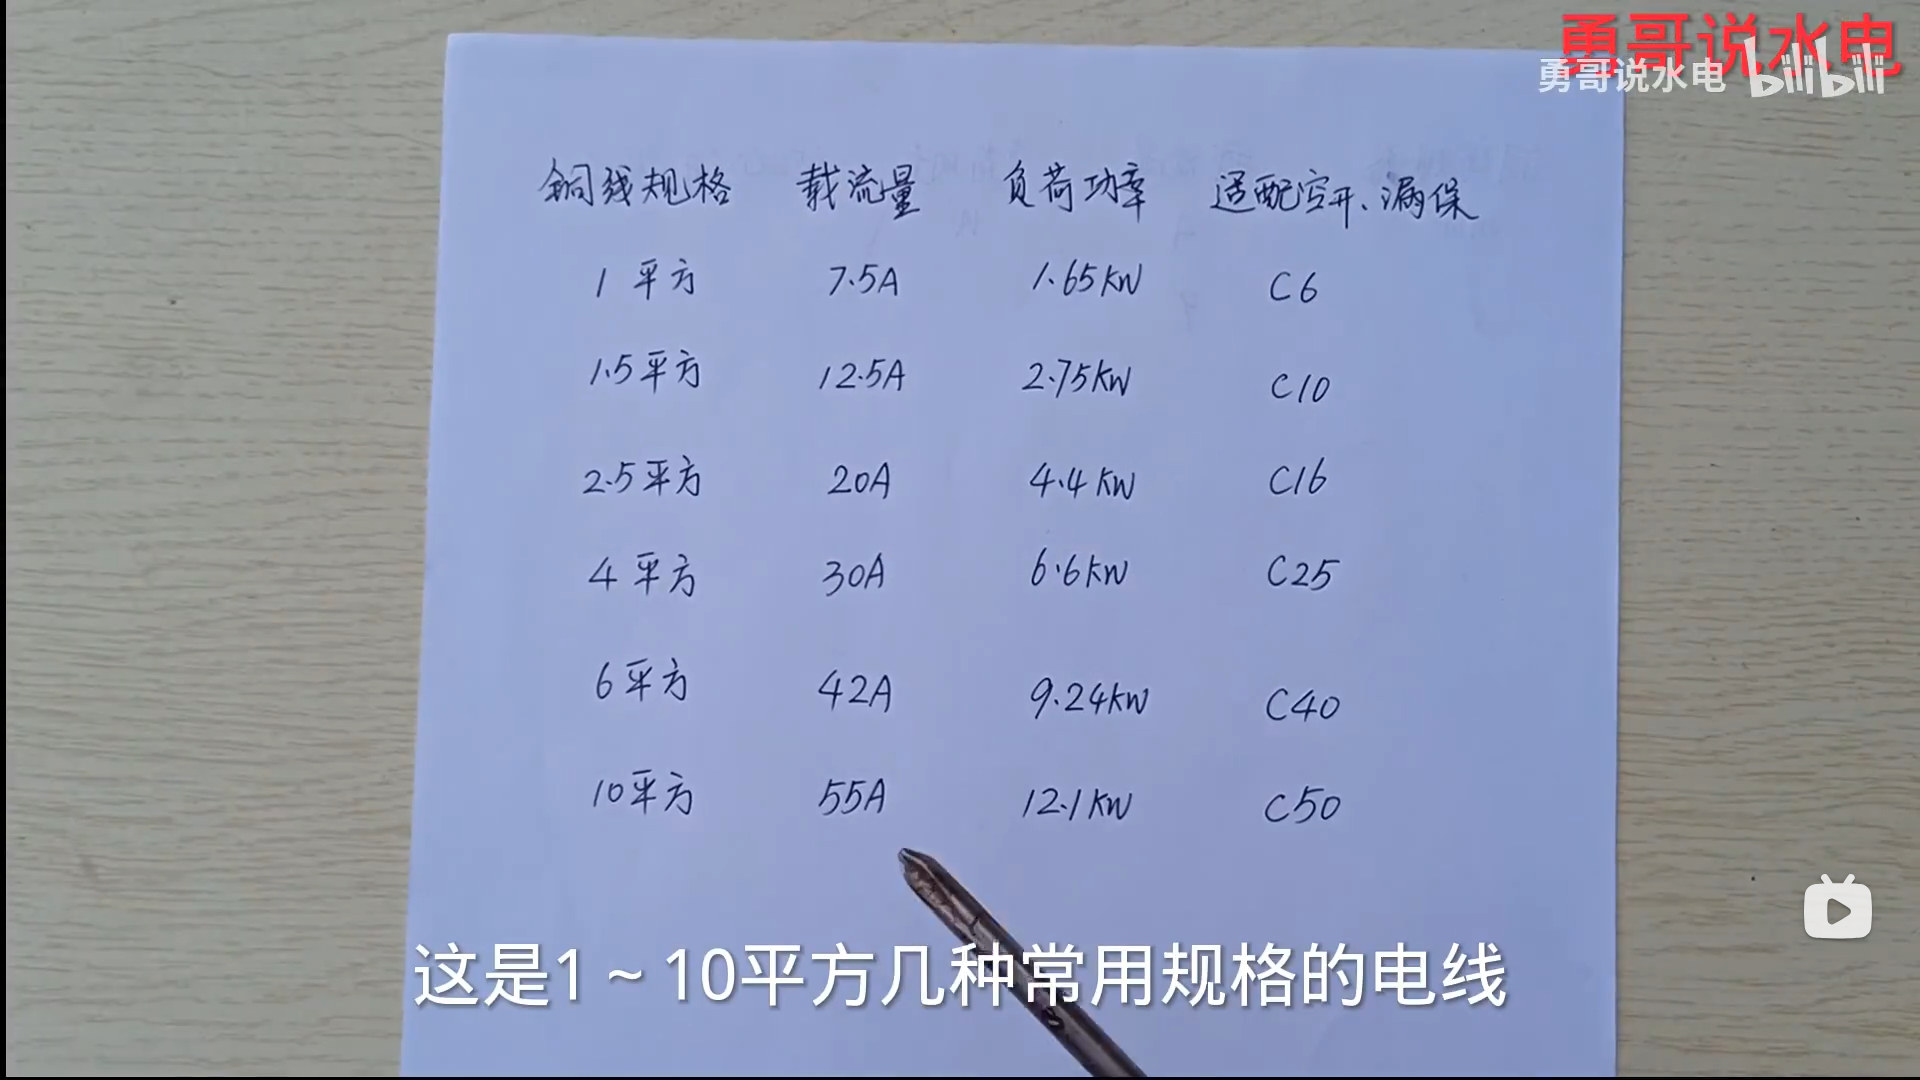 勇哥说水电
勇哥说水电 bilibili
铜线规格 载流量 负荷功率 适配空开、漏保
1平方 7.5A 1.65KW C6
1.5平方 12.5A 2.75KW C10
2.5平方 20A 4.4KW C16
4平方 30A 6.6KW C25
6平方 42A 9.24KW C40
10平方 55A 12.1KW C50
这是1~10平方几种常用规格的电线